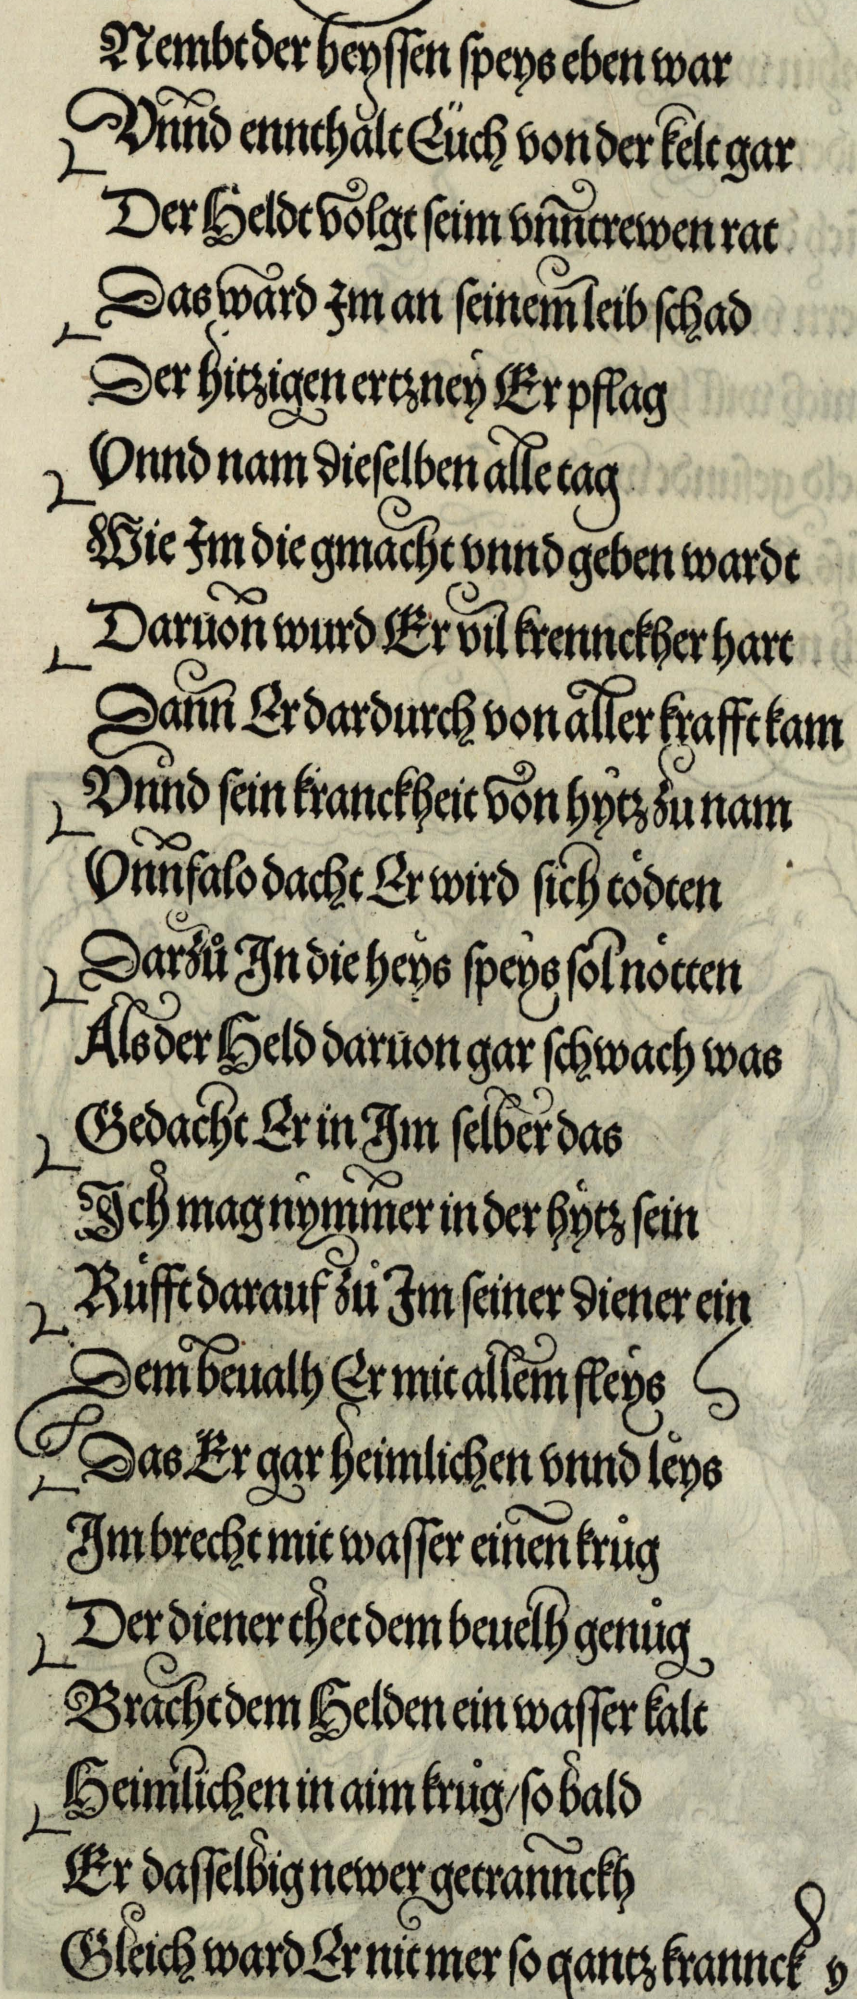 Nembt der heyssen speys eben war
Vnnd ennthalt Eüch von der kelt gar
Der Heldt volgt seim vnntrewen rat
Das ward Im an seinem leib schad
Der hitzigen ertzney Er pflag
Vnnd nam dieselben alle tag
Wie Im die gmacht vnnd geben wardt
Daruon wurd Er vil krennckher hart
Dann Er dardurch von aller krafft kam
Vnnd sein kranckheit von hytz zu nam
Vnnfalo dacht Er wird sich tödten
Darzů In die heys speys sol nötten
Als der Held daruon gar schwach was
Gedacht Er in Im selber das
Ich mag nymmer in der hytz sein
Rüfft darauf zů Im seiner diener ein
Dem beualh Er mit allem fleys
Das Er gar heimlichen vnnd leys
Im brecht mit wasser einen krůg
Der diener thet dem beuelh genůg
Bracht dem Helden ein wasser kalt
Heimlichen in aim krůg / so bald
Er dasselbig newer getrannckh
Gleich ward Er nit mer so gantz krannck y